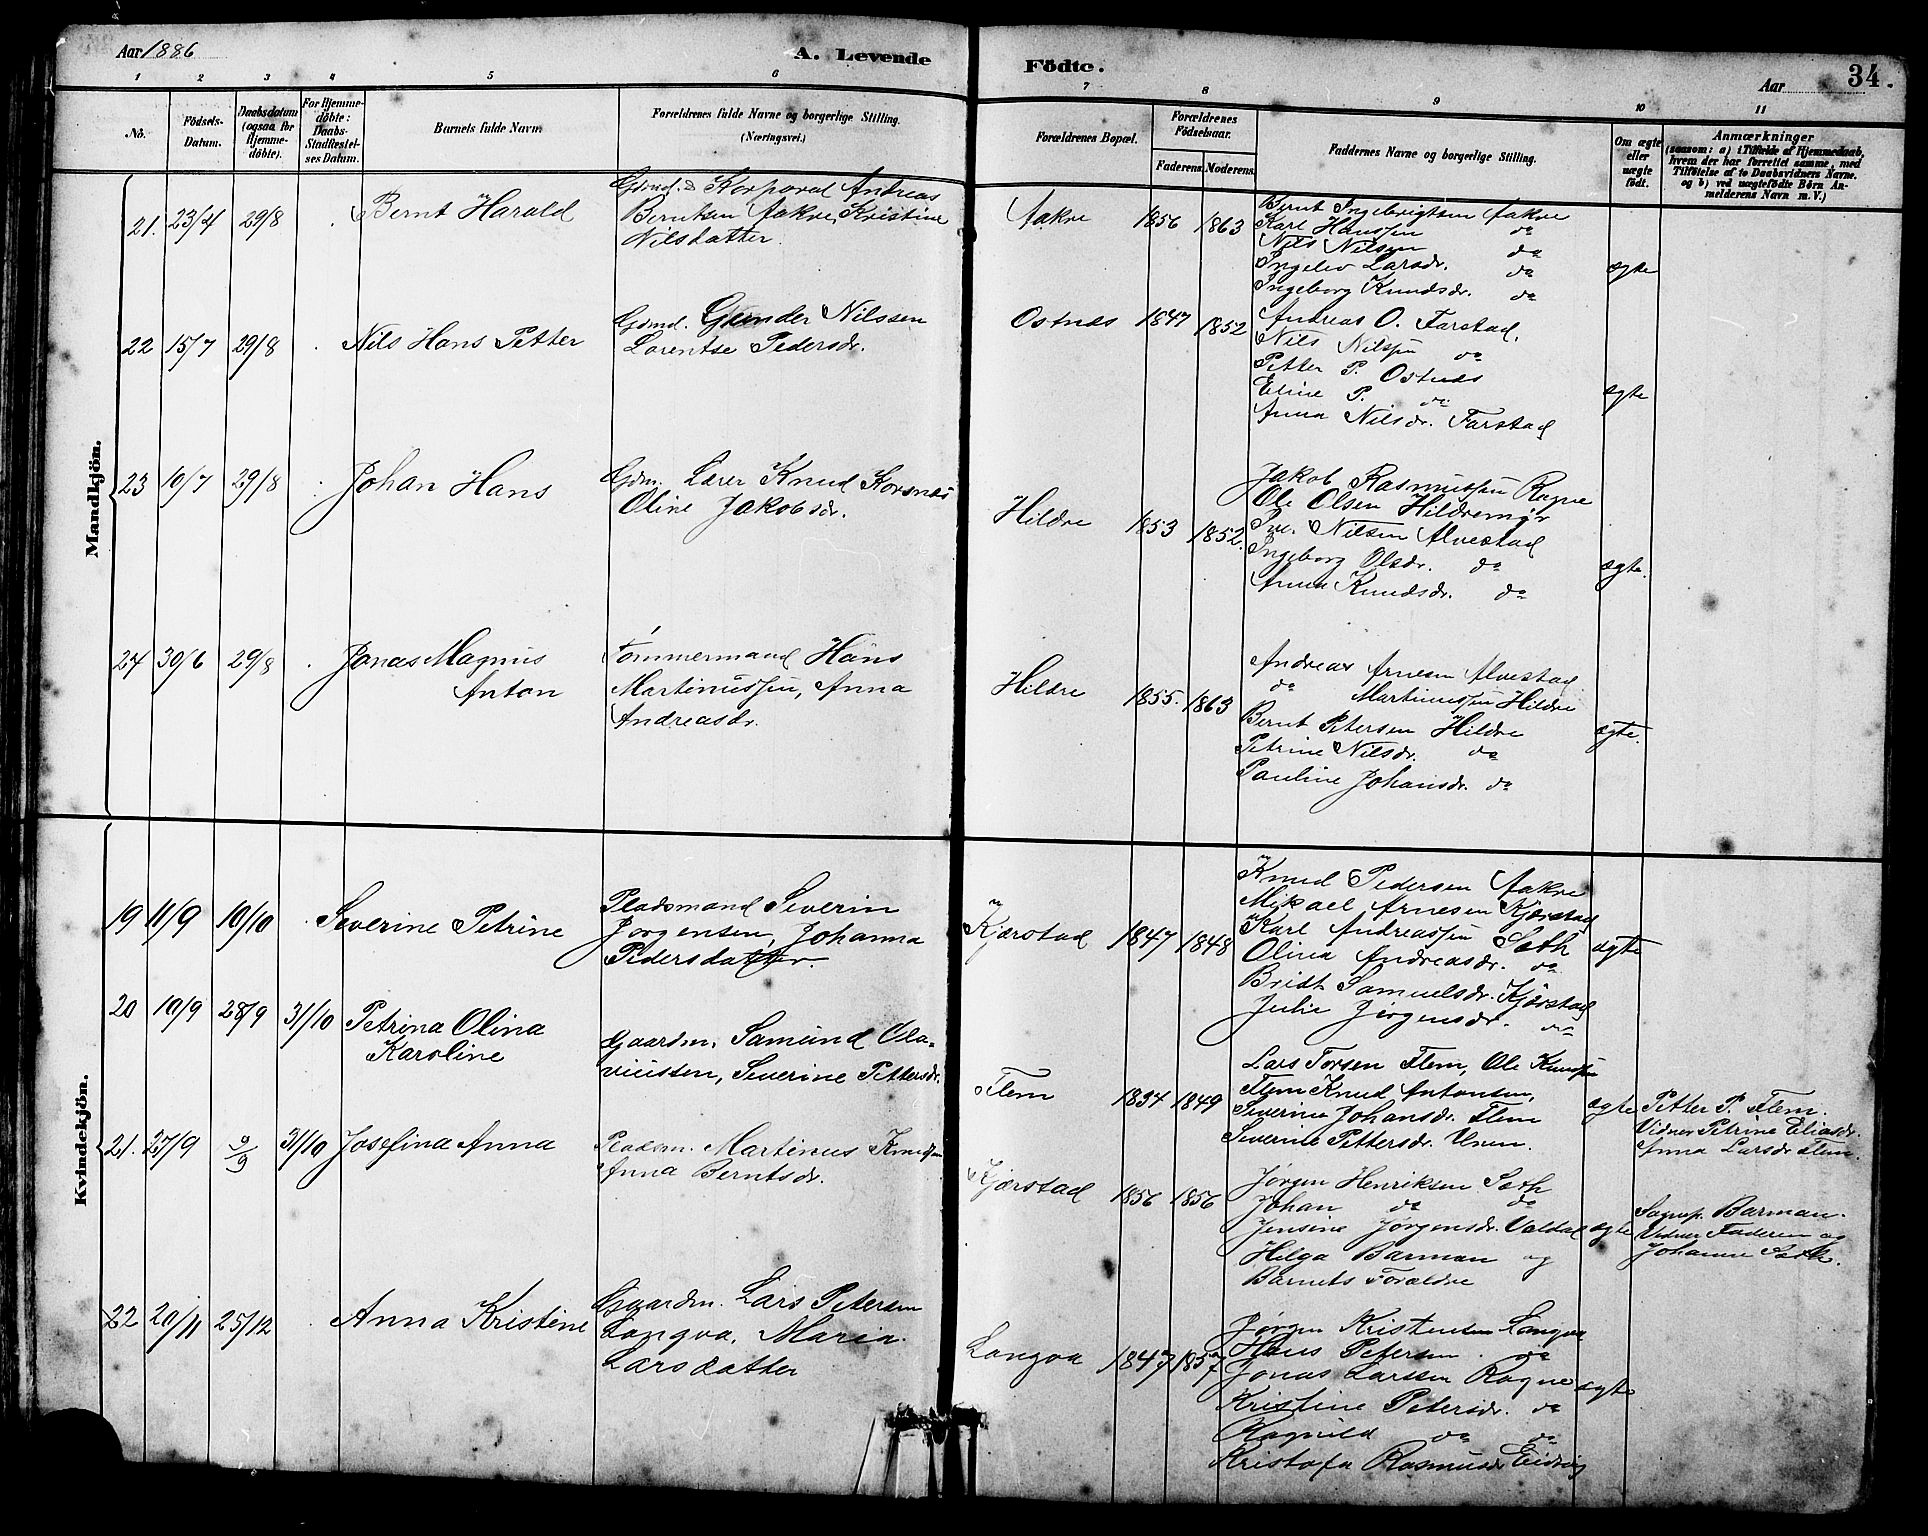 Aar 1886
A. Levende
Födte.
Aar
34.
1 2 3 4 5 6 7 8 9 10 11
No.
Födsels-Datum.
Daabsdatum (ogsaa for Hjemme-döbte).
For Hjemme-döbte: Daabs-Stadfæstel-ses Datum.
Barnets fulde Navn.
Forældrenes fulde Navne og borgerlige Stilling. (Næringsvei.)
Forældrenes Bopæl.
Forældrenes Födselsaar.
Faderens. Moderens.
Faddernes Navne og borgerlige Stilling.
Om ægte eller uægte födt.
Anmærkninger
(saasom: a) i Tilfælde af Hjemmedaab, hvem der har forrettet samme, med Tilföielse af to Daabsvidners Navne. og b) ved uægtefödte Börn An-melderens Navn m. V.)
Mandkjön.
21. 23/4 29/8 . Bernt Harald
Gdmd. & Korporal Andreas
Berntsen Aakre, Kristine
Nilsdatter.
Aakre 1856 1863
Bernt Ingebrigtsen Aakre
Karl Hanssen do
Nils Nilsen do
Ingelev Larsdr. do
Ingeborg Knudsdr. do
ægte
22 15/7 29/8 . Nils Hans Petter
Gdmd. Gunder Nilssen
Lorentse Pedersdr.
Ostnes 1847 1852
Andreas O. Farstad.
Nils Nilssen do
Petter P. Ostnes
Eline P. do
Anna Nilsdr. Farstad
ægte
23 10/7 29/8 . Johan Hans
Gdm. Lærer Knud Korsnes
Oline Jakobsdr.
Hildre 1853 1852.
Jakob Rasmussen Rogne
Ole Olsen Hildremyr
Nilsen Alvestad
Ingeborg Olsdr. do
Anna Knudsdr. do
ægte.
24 30/6 29/8 . Jonas Magnus
Anton
Tömmermand Hans
Martinussen, Anna
Andreasdr.
Hildre 1855. 1863
Andreas Arnesen Alvestad
do Martinussen Hildre
Bernt Petersen Hildre
Petrine Nilsdr. do
Pauline Johansdr. do
ægte.
Kvindekjön.
19 11/9 10/10 . Severine Petrine
Pladsmand Severin
Jörgensen, Johanna
Pedersdatter.
Kjærstad 1847 1848
Knud Pedersen Aakre
Mikael Arnesen Kjærstad
Karl Andreassen Sæth
Olina Andreasdr. do
Bridt Samuelsdr. Kjærstad
Julie Jörgensdr. do
ægte
20 19/9 28/9 31/10 Petrina Olina
Karoline
Gaardm. Samund Ola-
viusen, Severine Pettersdr.
Flem 1834 1849
Lars Torsen Flem, Ole Knudsen
Flem Knud Antonsen,
Severine Johansdr. Flem
Severine Pettersdr. Uren.
ægte
Petter P. Flem.
Vidner Petrine Eliasdr.
Anna Larsdr Flem.
21. 27/9 31/10 Josefina Anna
Pladsm. Martinus Knudsen
Anna Berntsdr.
Kjærstad 1856 1856
Jörgen Henriksen Sæth
Johan do do
Jensine Jörgensdr.
Helga Barman og
Barnets Forældre
ægte
Sognep. Barman.
Vidner Faderen og
Johanne Sæth.
22 20/11 25/12 . Anna Kristine
Gaardm. Lars Petersen
Longva, Maria
Larsdatter
Longva 1847 1857
Jörgen Kristensen Longva
Hans Petersen do
Jonas Larssen Rogne
Kristine Petersdr. do
Ragnild do do
Kristofa Rasmusdr Eidsvig
ægte